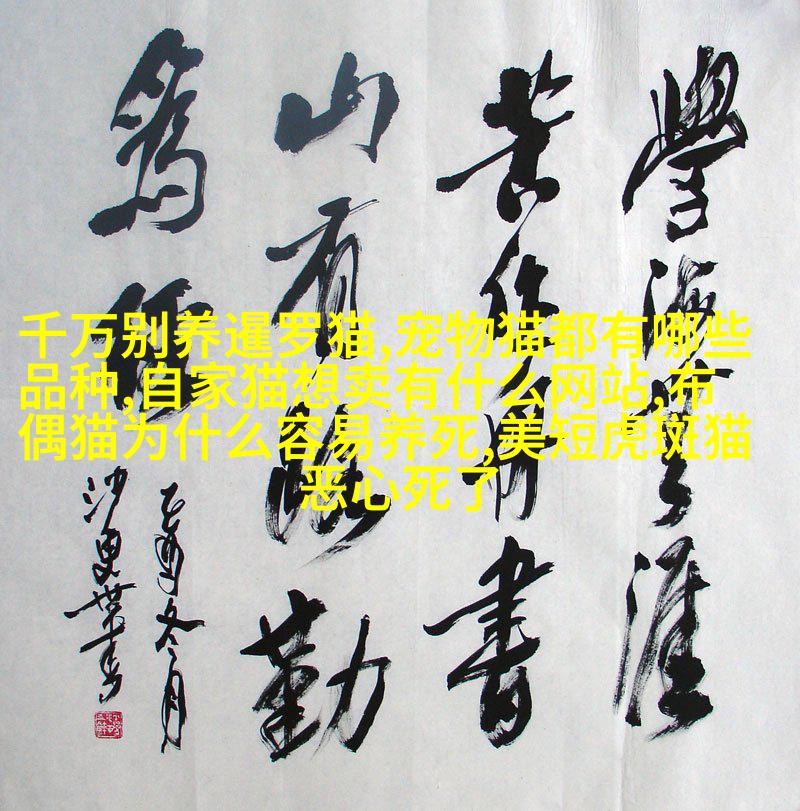 千万别养暹罗猫,宠物猫都有哪些
品种,自家猫想卖有什么网站,布
偶猫为什么容易养死,美短虎斑猫
恶心死了
學海無涯
苦作舟書
山有路勤
為徑
乙酉冬月